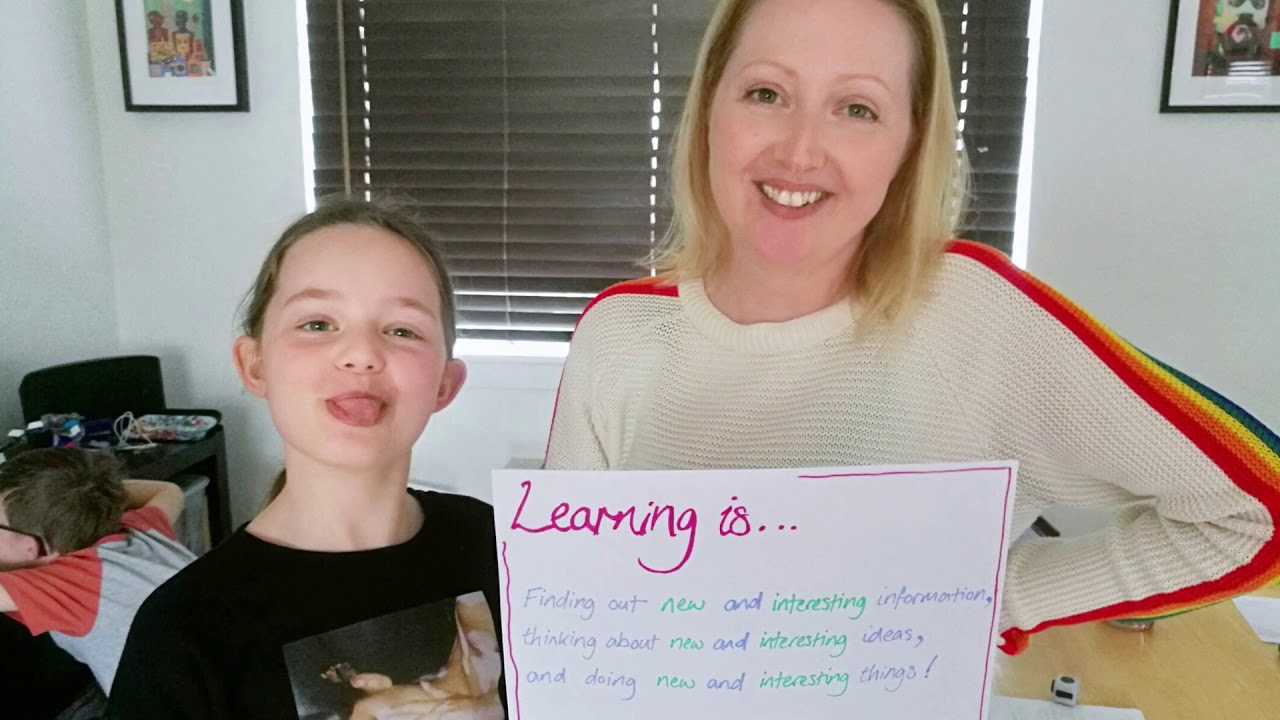 Learning is...
Finding out new and interesting information,
thinking about new and interesting ideas,
and doing new and interesting things!